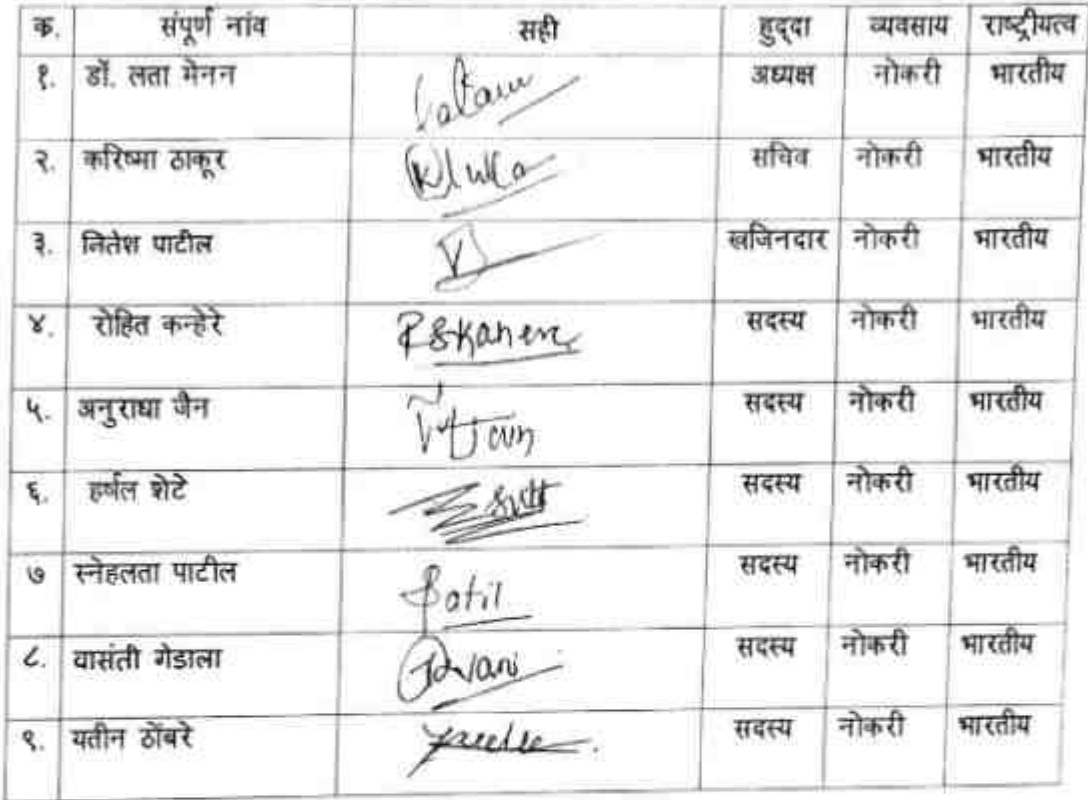 क. संपूर्ण नांव सही हुद्दा व्यवसाय राष्ट्रीयत्व
१. डॉ. लता मेनन अध्यक्ष नोकरी भारतीय
२. करिष्मा ठाकूर सचिव नोकरी भारतीय
३. नितेश पाटील खजिनदार नोकरी भारतीय
४. रोहित कन्हेरे RSKaner सदस्य नोकरी भारतीय
५. अनुराधा जैन Jain सदस्य नोकरी भारतीय
६. हर्षल शेटे सदस्य नोकरी भारतीय
७ स्नेहलता पाटील Patil सदस्य नोकरी भारतीय
८. वासंती गेडाला सदस्य नोकरी भारतीय
९. यतीन ठोंबरे सदस्य नोकरी भारतीय